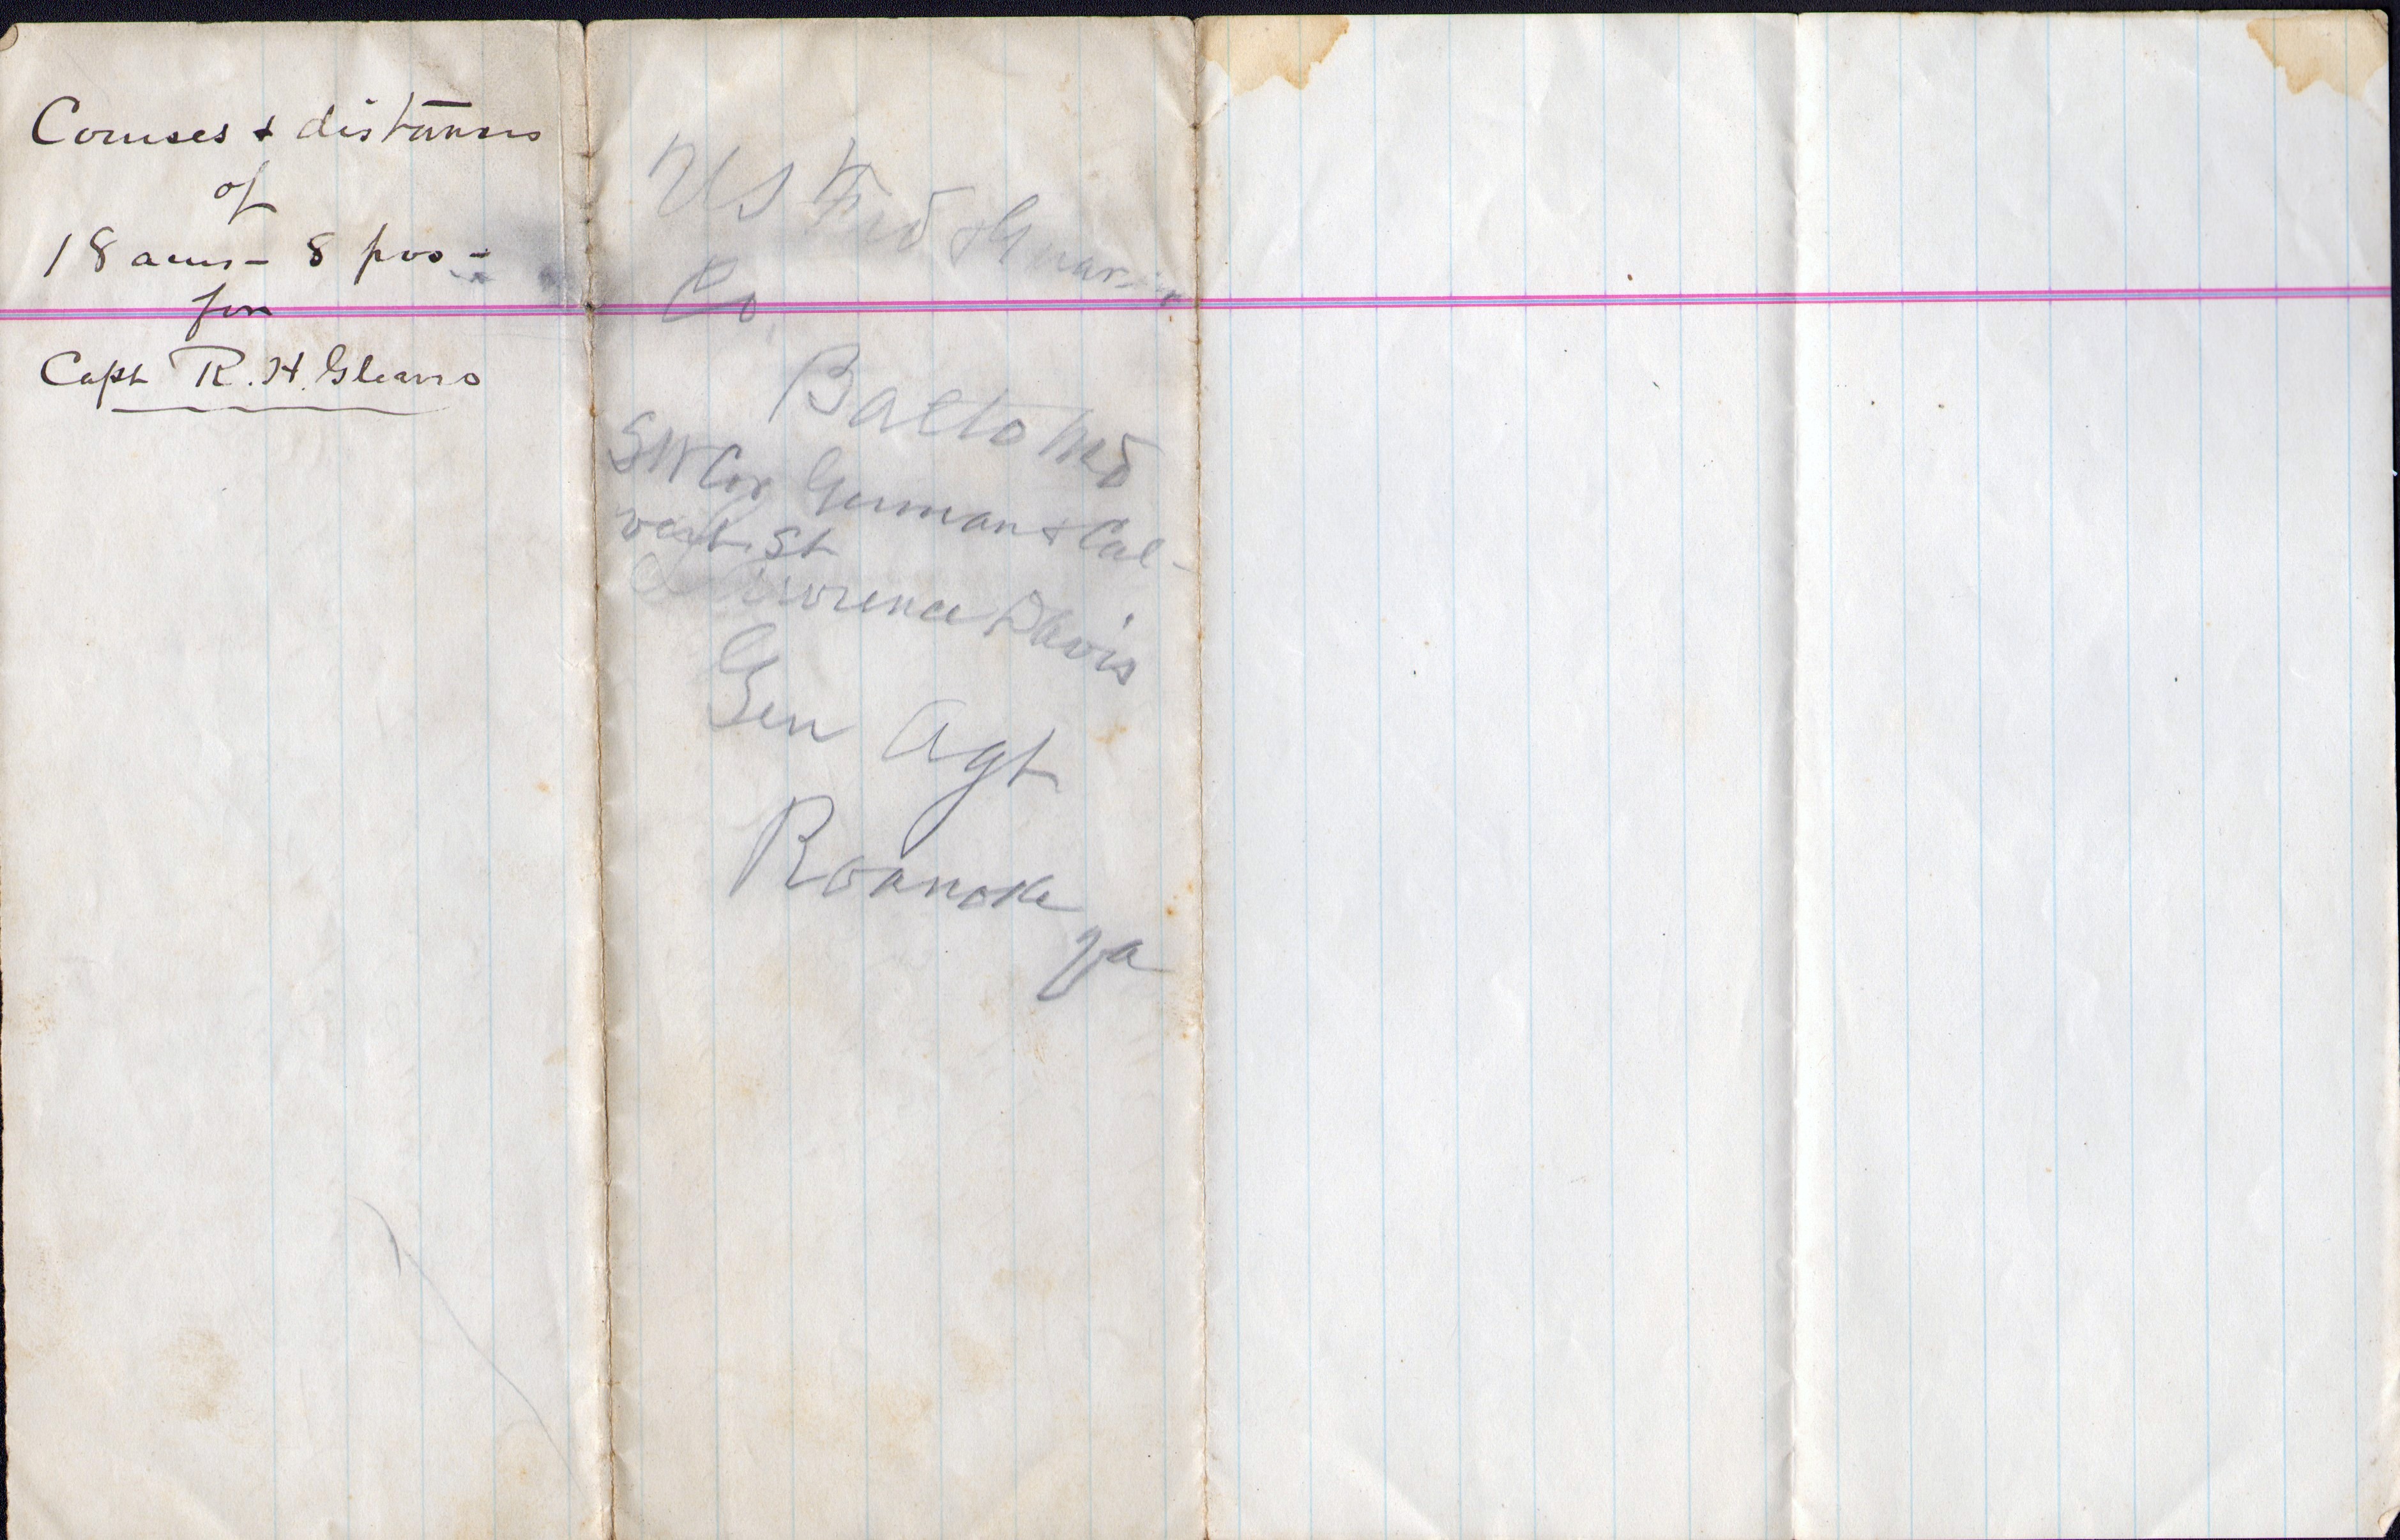 Courses & distances
of
18 acres - 8 pos -
for
Capt R. H. Gleaves
US Fid & Guar
Co.
Balto Md
SW Cor German & Cal-
vert St
Lawrence Davis
Gen Agt
Roanoke
Va